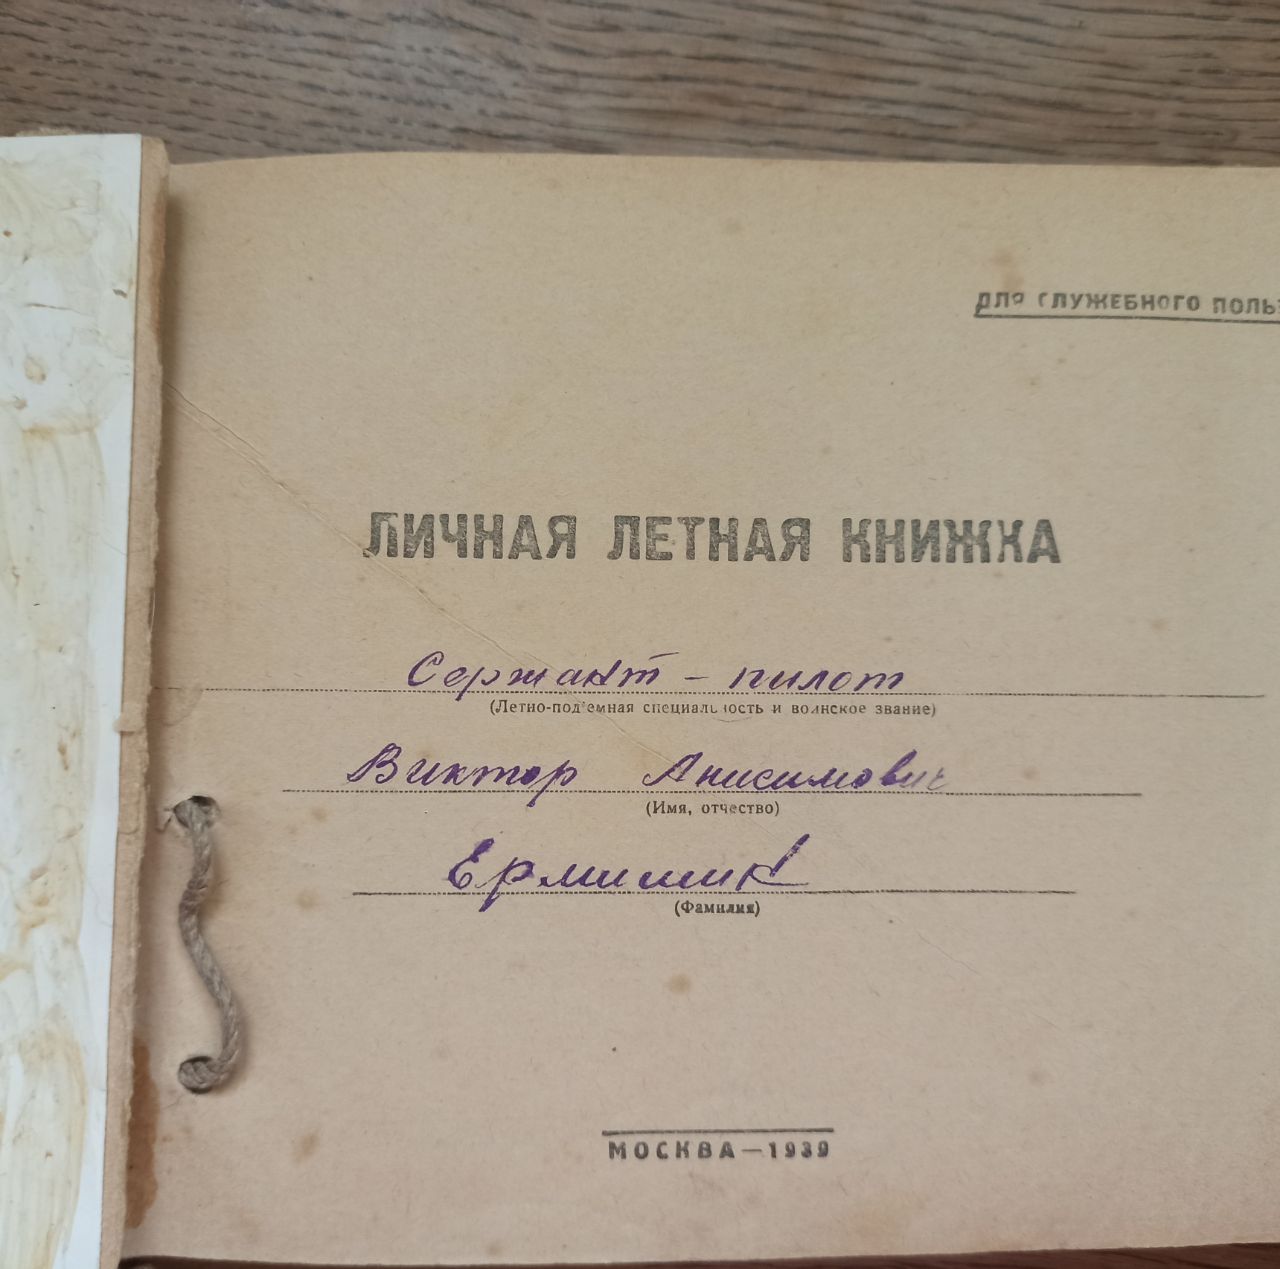 ДЛЯ СЛУЖЕБНОГО ПОЛЬЗ
ЛИЧНАЯ ЛЕТНАЯ КНИЖКА
Сержант - пилот
(Летно-под'емная специальность и воинское звание)
Виктор Анисимович
(Имя, отчество)
Ермишин
(Фамилия)
МОСКВА—1939